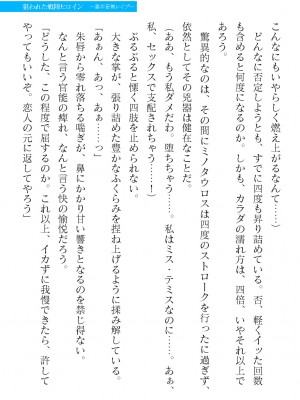 狙われた戦闘ヒロイン
こんなにもいやらしく燃え上がるなんて……)
どんなに否定しようとも、すでに四度も昇り詰めている。否、軽くイッた回数
も含めると何度になるのか。しかも、カラダの濡れ方は、四倍、いやそれ以上で
あろう。
驚異的なのは、その間にミノタウロスは四度のストロークを行ったに過ぎず、
依然としてその兇器は健在なことだ。
(ああ、もう私ダメだわ。堕ちちゃう……。私はミス・テミスなのに……。あぁ、
私、セックスで支配されちゃう……!)
ぶるぶると慄く四肢を止められない。
大きな掌が、張り詰めた豊かなふくらみを捏ね上げるように揉み解している。
「あぁん、あっ、あぁ……っ」
朱唇から零れ落ちる喘ぎが、鼻にかかり甘い響きとなるのを禁じ得ない。
なんと言う官能の痺れ、なんと言う快の愉悦だろう。
「どうした、この程度で屈するのか。これ以上、イカずに我慢できたら、許して
やってもいいぞ。恋人の元に返してやろう」